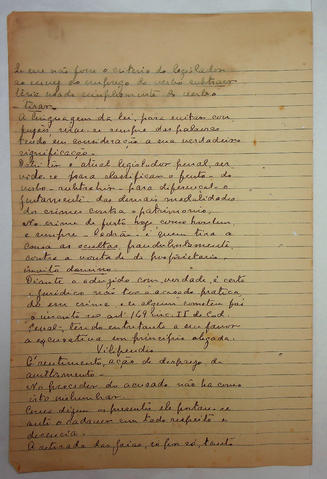 Se esse não fosse o criterio do legislador
ao envez do emprego do verbo subtrair
teria usado simplesmente do verbo
- tirar
A linguagem da lei, para evitar con-
fusões, usa-se sempre das palavras
tendo em consideração a sua verdadeira
significação.
o atual legislador penal, ser
viu-se para classificar o furto - do
verbo - subtrahir - para diferençal-o
das demais modalidades
dos crimes contra o patrimonio.
No crime de furto, hoje como hontem
e sempre - ladrão - é quem tira a
cousa as ocultas, fraudulentamente,
contra a vontade do proprietario
invito domino.
Diante o aduzido com verdade, é certo
e juridico não ter o acusado praticado
esse crime, e si algum cometeu foi
o previsto no art. 169 inc. II do Cod.
Penal, tendo entretanto a seu favor
a excusativa em principio alegada.
Vilipendio
ação de desprezo, de
aviltamento -
No proceder do acusado não ha como
isto vislumbrar.
Como dizem os presentes ele portou-se
ante o cadaver com todo respeito e
decencia.
A retirada das joias, só por só, tanto